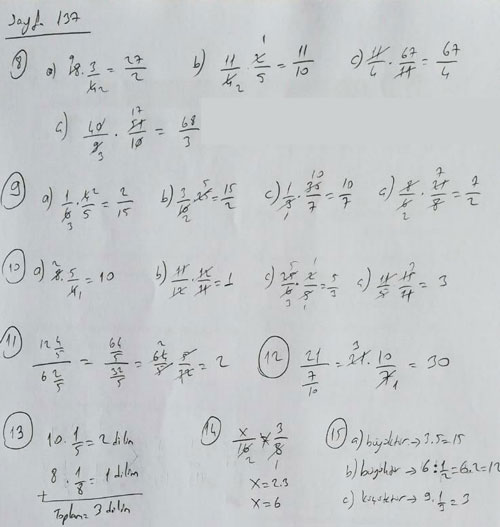 Sayfa 137
8) a) 18 · 3/4 = 27/2 b) 11/4 · 2/5 = 11/10 c) 11/4 · 67/11 = 67/4
d) 40/9 · 51/10 = 68/3
9) a) 1/6 · 4/5 = 2/15 b) 3/10 · 25 = 15/2 c) 1/5 · 50/7 = 10/7 d) 8/6 · 21/8 = 7/2
10) a) 8 · 5/4 = 10 b) 11/12 · 12/11 = 1 c) 25/6 · 2/5 = 5/3 d) 11/5 · 15/11 = 3
11) 12 4/5 / 6 2/5 = 64/5 / 32/5 = 64/5 · 5/32 = 2 12) 21 / 7/10 = 21 · 10/7 = 30
13) 10 · 1/5 = 2 dilim
8 · 1/8 = 1 dilim
+
Toplam = 3 dilim
14) x/16 × 3/8
x = 2.3
x = 6
15) a) büyüktür → 3.5 = 15
b) büyüktür → 6 : 1/2 = 6.2 = 12
c) küçüktür → 9 · 1/3 = 3